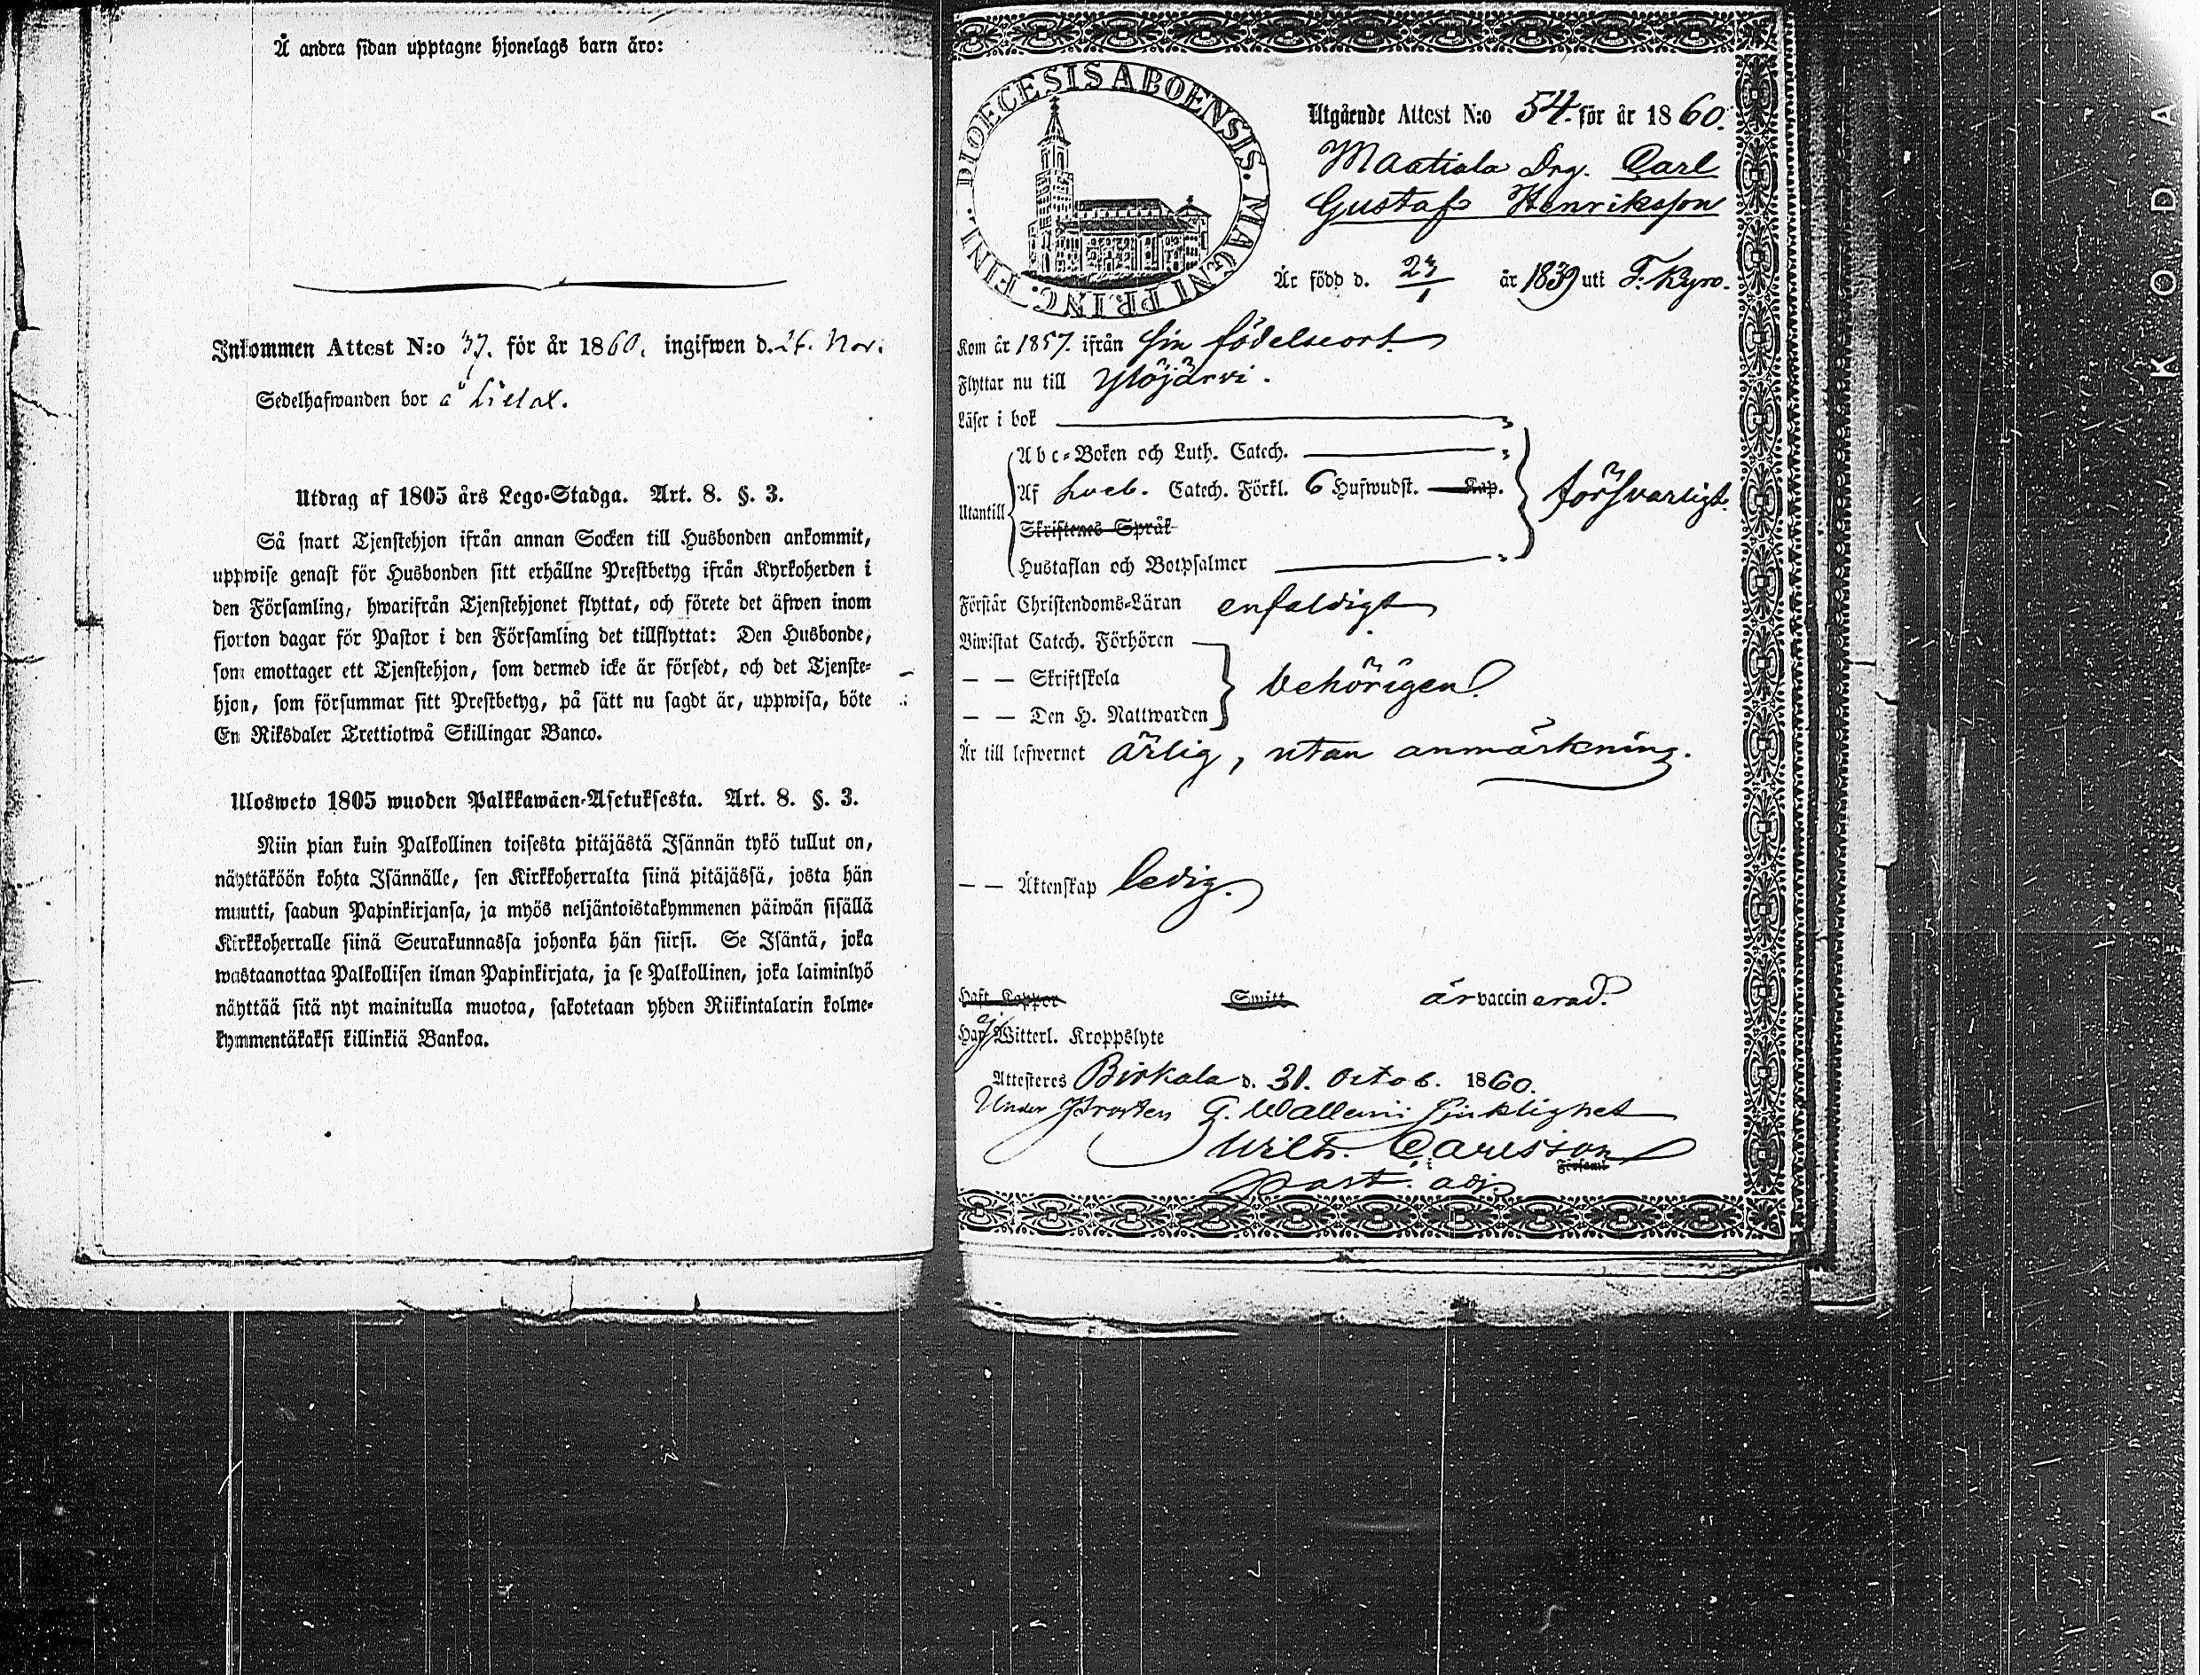 Å andra sidan upptagne hjonelags barn äro:
Inkommen Attest N:o 37. för år 1860, ingifwen d. 26. Nov.
Sedelhafwanden bor å
Utdrag af 1805 års Lego-Stadga. Art. 8. §. 3.
Så snart Tjenstehjon ifrån annan Socken till Husbonden ankommit,
uppwise genast för Husbonden sitt erhållne Prestbetyg ifrån Kyrkoherden i
den Församling, hwarifrån Tjenstehjonet flyttat, och förete det äfwen inom
fjorton dagar för Pastor i den Församling det tillflyttat: Den Husbonde,
som emottager ett Tjenstehjon, som dermed icke är försedt, och det Tjenste-
hjon, som försummar sitt Prestbetyg, på sätt nu sagdt är, uppwisa, böte
En Riksdaler Trettiotwå Skillingar Banco.
Ulosweto 1805 wuoden Palkkawäen-Asetuksesta. Art. 8. §. 3.
Niin pian kuin Palkollinen toisesta pitäjästä Isännän tykö tullut on,
näyttäköön kohta Isännälle, sen Kirkkoherralta siinä pitäjässä, josta hän
muutti, saadun Papinkirjansa, ja myös neljäntoistakymmenen päiwän sisällä
Kirkkoherralle siinä Seurakunnassa johonka hän siirsi. Se Isäntä, joka
wastaanottaa Palkollisen ilman Papinkirjata, ja se Palkollinen, joka laiminlyö
näyttää sitä nyt mainitulla muotoa, sakotetaan yhden Riikintalarin kolme-
kymmentäkaksi killinkiä Bankoa.
DIOECESIS ABOENSIS. MAGNI PRINC. FINL.
Utgående Attest N:o 54. för år 1860.
Maatiala Drg. Carl
Gustaf Henriksson
Är född d. 23/1 år 1839 uti T. Kyro.
Kom år 1857. ifrån sin födelseort
Flyttar nu till Ylöjärvi.
Läser i bok
Abc-Boken och Luth. Catech.
Utantill Af Sveb. Catech. Förkl. 6 Hufwudst. Kap. försvarligt.
Skriftenes Språk
Hustaflan och Botpsalmer
Förstår Christendoms-Läran enfaldigt
Biwistat Catech. Förhören
— — Skriftskola behörigen
— — Den H. Nattwarden
Är till lefwernet ärlig, utan anmärkning.
— — Äktenskap ledig.
Haft Koppor Smitt är vaccinerad.
Har ej Witterl. Kroppslyte
Attesteres Birkala d. 31. Octob. 1860.
Under Prosten G. Wallenii sjuklighet
Wilh. Carlsson
Församl
Past. adj.
KODA